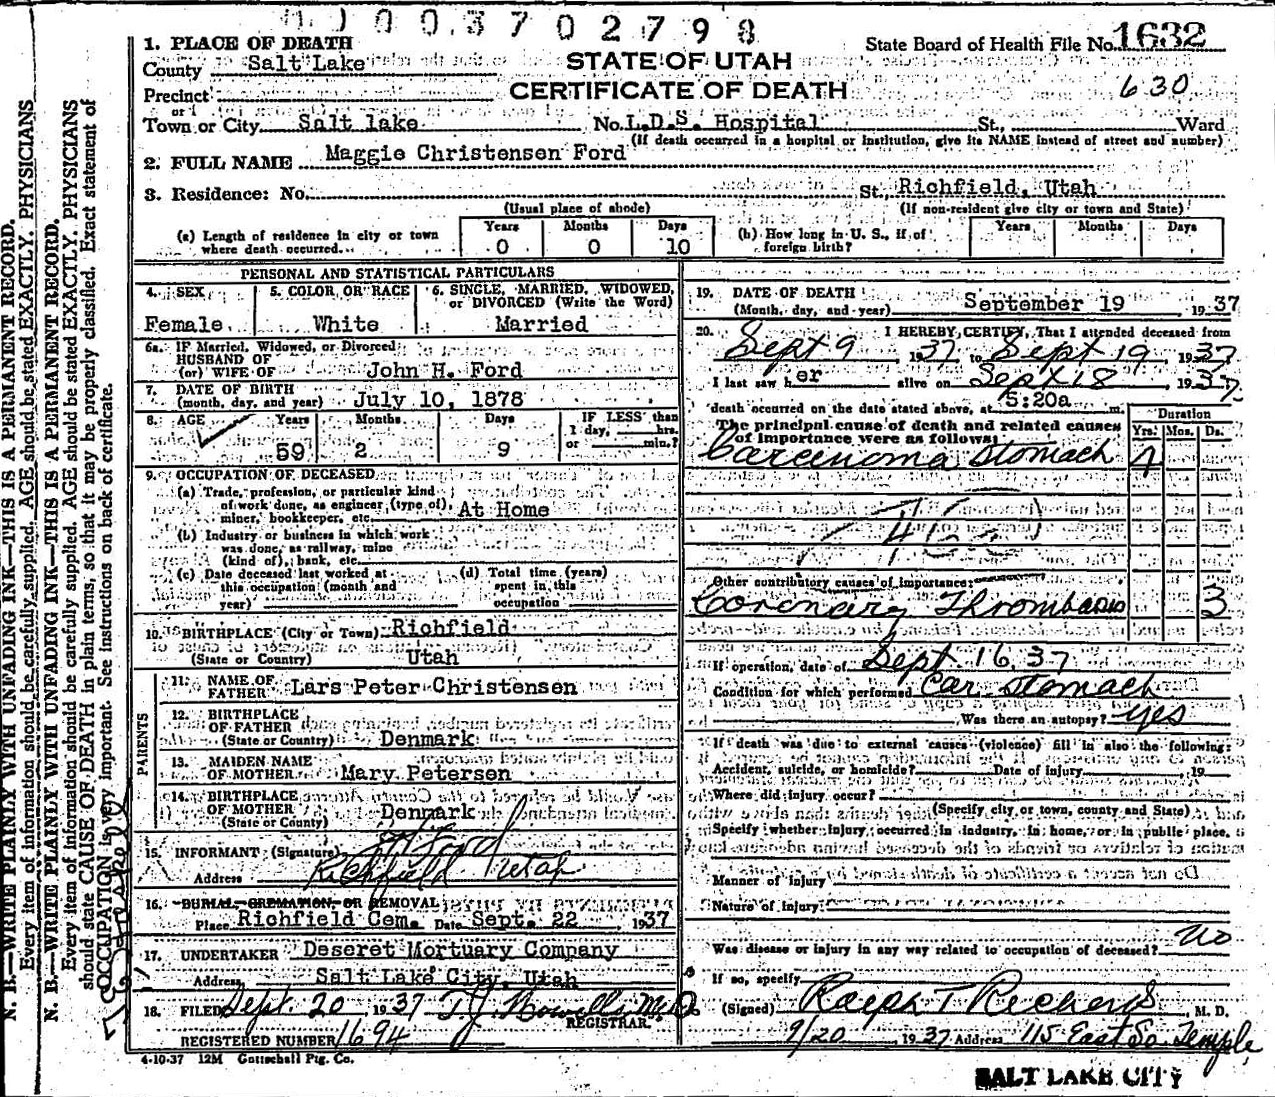 0 0 3 7 0 2 7 9 8
1. PLACE OF DEATH
State Board of Health File No. 1632
County Salt Lake
STATE OF UTAH
CERTIFICATE OF DEATH
630
Precinct
or
Town or City Salt lake No. L.D.S. Hospital St., Ward
(If death occurred in a hospital or institution, give its NAME instead of street and number)
2. FULL NAME Maggie Christensen Ford
3. Residence: No. St. Richfield, Utah
(Usual place of abode) (If non-resident give city or town and State)
(a) Length of residence in city or town where death occurred. Years 0 Months 0 Days 10
(b) How long in U. S., if of foreign birth? Years Months Days
PERSONAL AND STATISTICAL PARTICULARS
4. SEX Female
5. COLOR OR RACE White
6. SINGLE, MARRIED, WIDOWED, or DIVORCED (Write the Word) Married
6a. IF Married, Widowed, or Divorced
HUSBAND OF
(or) WIFE OF John H. Ford
7. DATE OF BIRTH
(month, day, and year) July 10, 1878
8. AGE Years 59 Months 2 Days 9
IF LESS than 1 day, hrs. or min.?
9. OCCUPATION OF DECEASED
(a) Trade, profession, or particular kind
of work done, as engineer (type of),
miner, bookkeeper, etc. At Home
(b) Industry or business in which work
was done, as railway, mine
(kind of), bank, etc.
(c) Date deceased last worked at
this occupation (month and
year)
(d) Total time (years)
spent in this
occupation
10. BIRTHPLACE (City or Town) Richfield
(State or Country) Utah
PARENTS
11. NAME OF
FATHER Lars Peter Christensen
12. BIRTHPLACE
OF FATHER
(State or Country) Denmark
13. MAIDEN NAME
OF MOTHER Mary Petersen
14. BIRTHPLACE
OF MOTHER
(State or Country) Denmark
15. INFORMANT (Signature) J H Ford
Address Richfield Utah
16. BURIAL, CREMATION, OR REMOVAL
Place Richfield Cem. Date Sept. 22 1937
17. UNDERTAKER Deseret Mortuary Company
Address Salt Lake City, Utah
18. FILED Sept. 20 1937 T.J. Howells M.D.
REGISTRAR.
REGISTERED NUMBER 1694
4-10-37 12M Gottschall Ptg. Co.
19. DATE OF DEATH
(Month, day, and year) September 19 1937
20. I HEREBY CERTIFY, That I attended deceased from
Sept 9 1937 to Sept 19 1937
I last saw her alive on Sept 18 1937
death occurred on the date stated above, at 5:20a m.
The principal cause of death and related causes
of importance were as follows:
Duration
Yrs. Mos. Ds.
Carcinoma stomach 1
Other contributory causes of importance:
Coronary Thrombosis 3
If operation, date of Sept 16, 37
Condition for which performed Car. Stomach
Was there an autopsy? yes
If death was due to external causes (violence) fill in also the following:
Accident, suicide, or homicide? Date of injury 19
Where did injury occur?
(Specify city or town, county and State)
Specify whether injury occurred in industry, in home, or in public place.
Manner of injury
Nature of injury
Was disease or injury in any way related to occupation of deceased? No
If so, specify
(Signed) Ralph T Richards, M. D.
9/20 1937 Address 115 East So. Temple
SALT LAKE CITY
N. B.—WRITE PLAINLY WITH UNFADING INK—THIS IS A PERMANENT RECORD.
Every item of information should be carefully supplied. AGE should be stated EXACTLY. PHYSICIANS
N. B.—WRITE PLAINLY WITH UNFADING INK—THIS IS A PERMANENT RECORD.
Every item of information should be carefully supplied. AGE should be stated EXACTLY. PHYSICIANS
should state CAUSE OF DEATH in plain terms, so that it may be properly classified. Exact statement of
OCCUPATION is very important. See instructions on back of certificate.